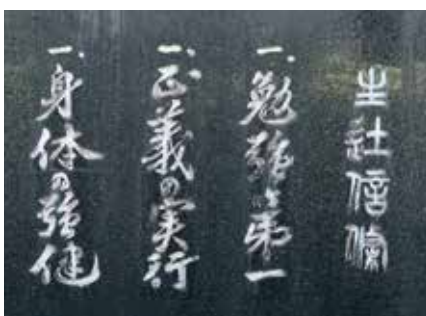 生社信條
一、勉強が第一
一、正義の実行
一、身体の強健